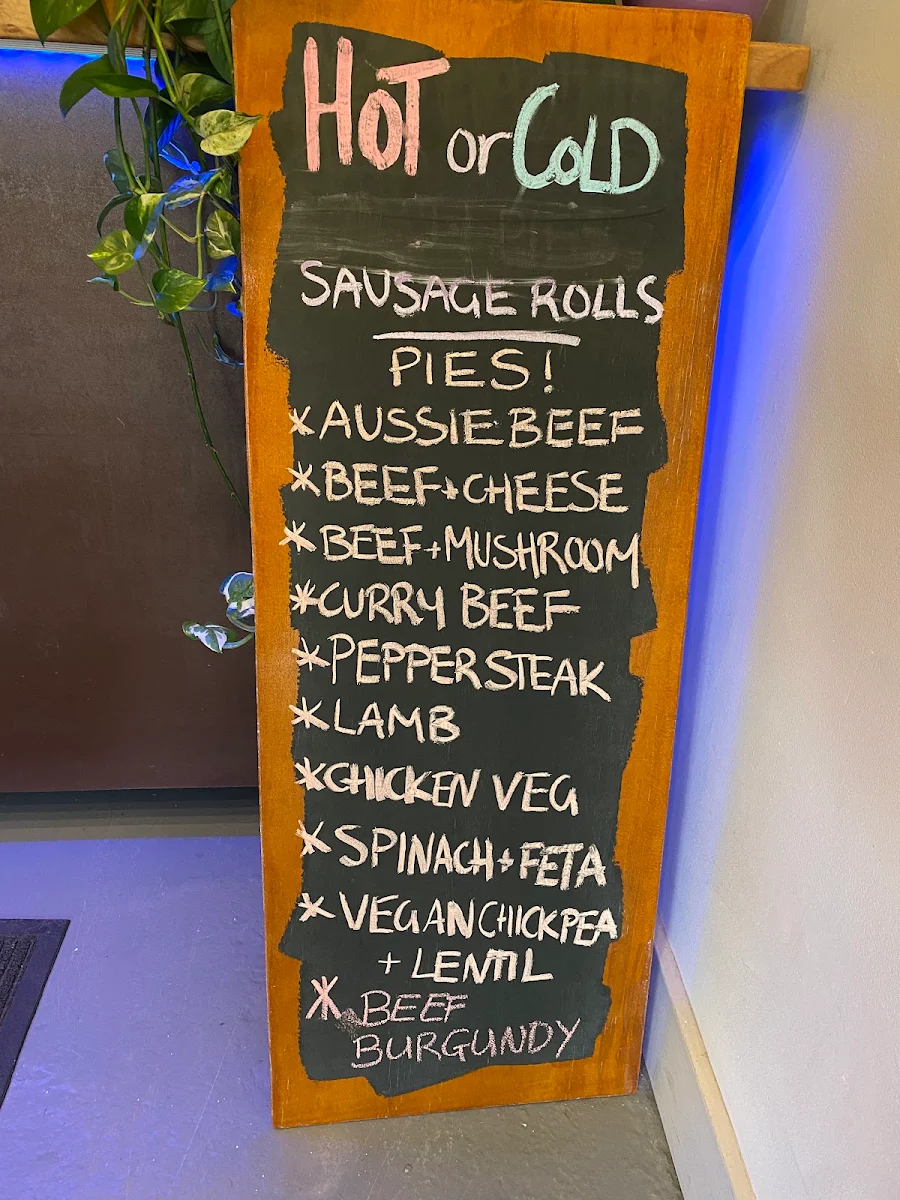 HOT or COLD
SAUSAGE ROLLS
PIES!
* AUSSIE BEEF
* BEEF + CHEESE
* BEEF + MUSHROOM
* CURRY BEEF
* PEPPER STEAK
* LAMB
* CHICKEN VEG
* SPINACH + FETA
* VEGAN CHICKPEA
+ LENTIL
* BEEF
BURGUNDY